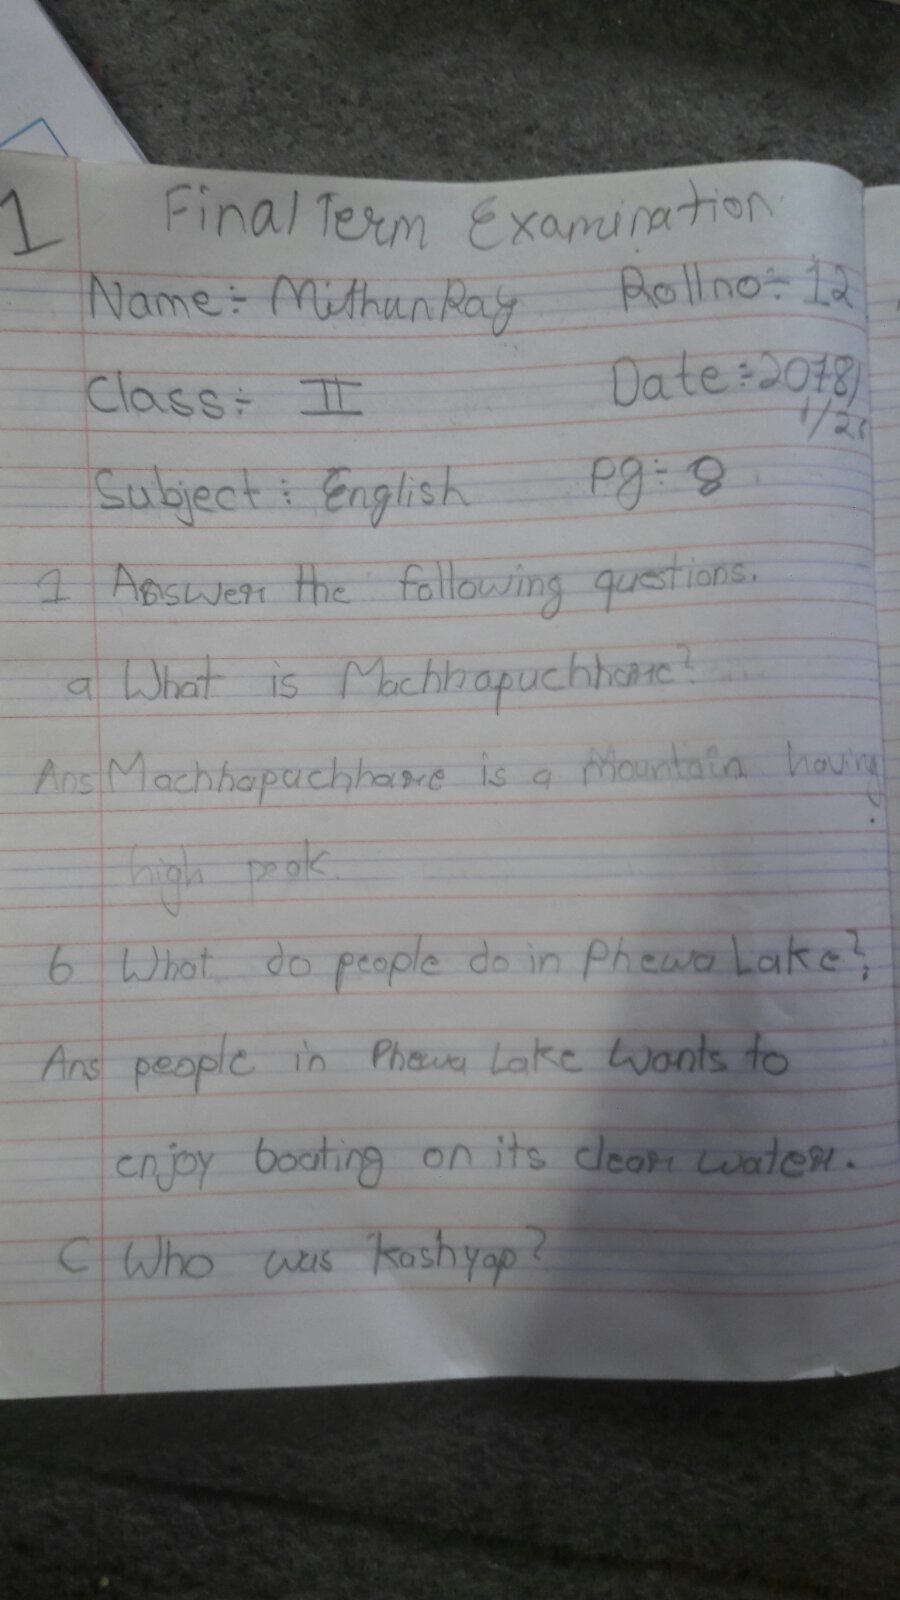 1 Final Term Examination
Name:- Mithun Ray Roll no:- 12
Class:- II Date:- 2078/
1/2
Subject: English Pg:- 8
1 Answer the following questions.
a What is Machhapuchhare?
Ans Machhapuchhare is a Mountain having
high peak.
b What do people do in Phewa Lake?
Ans people in Phewa Lake wants to
enjoy boating on its clear water.
C Who was Kashyap?